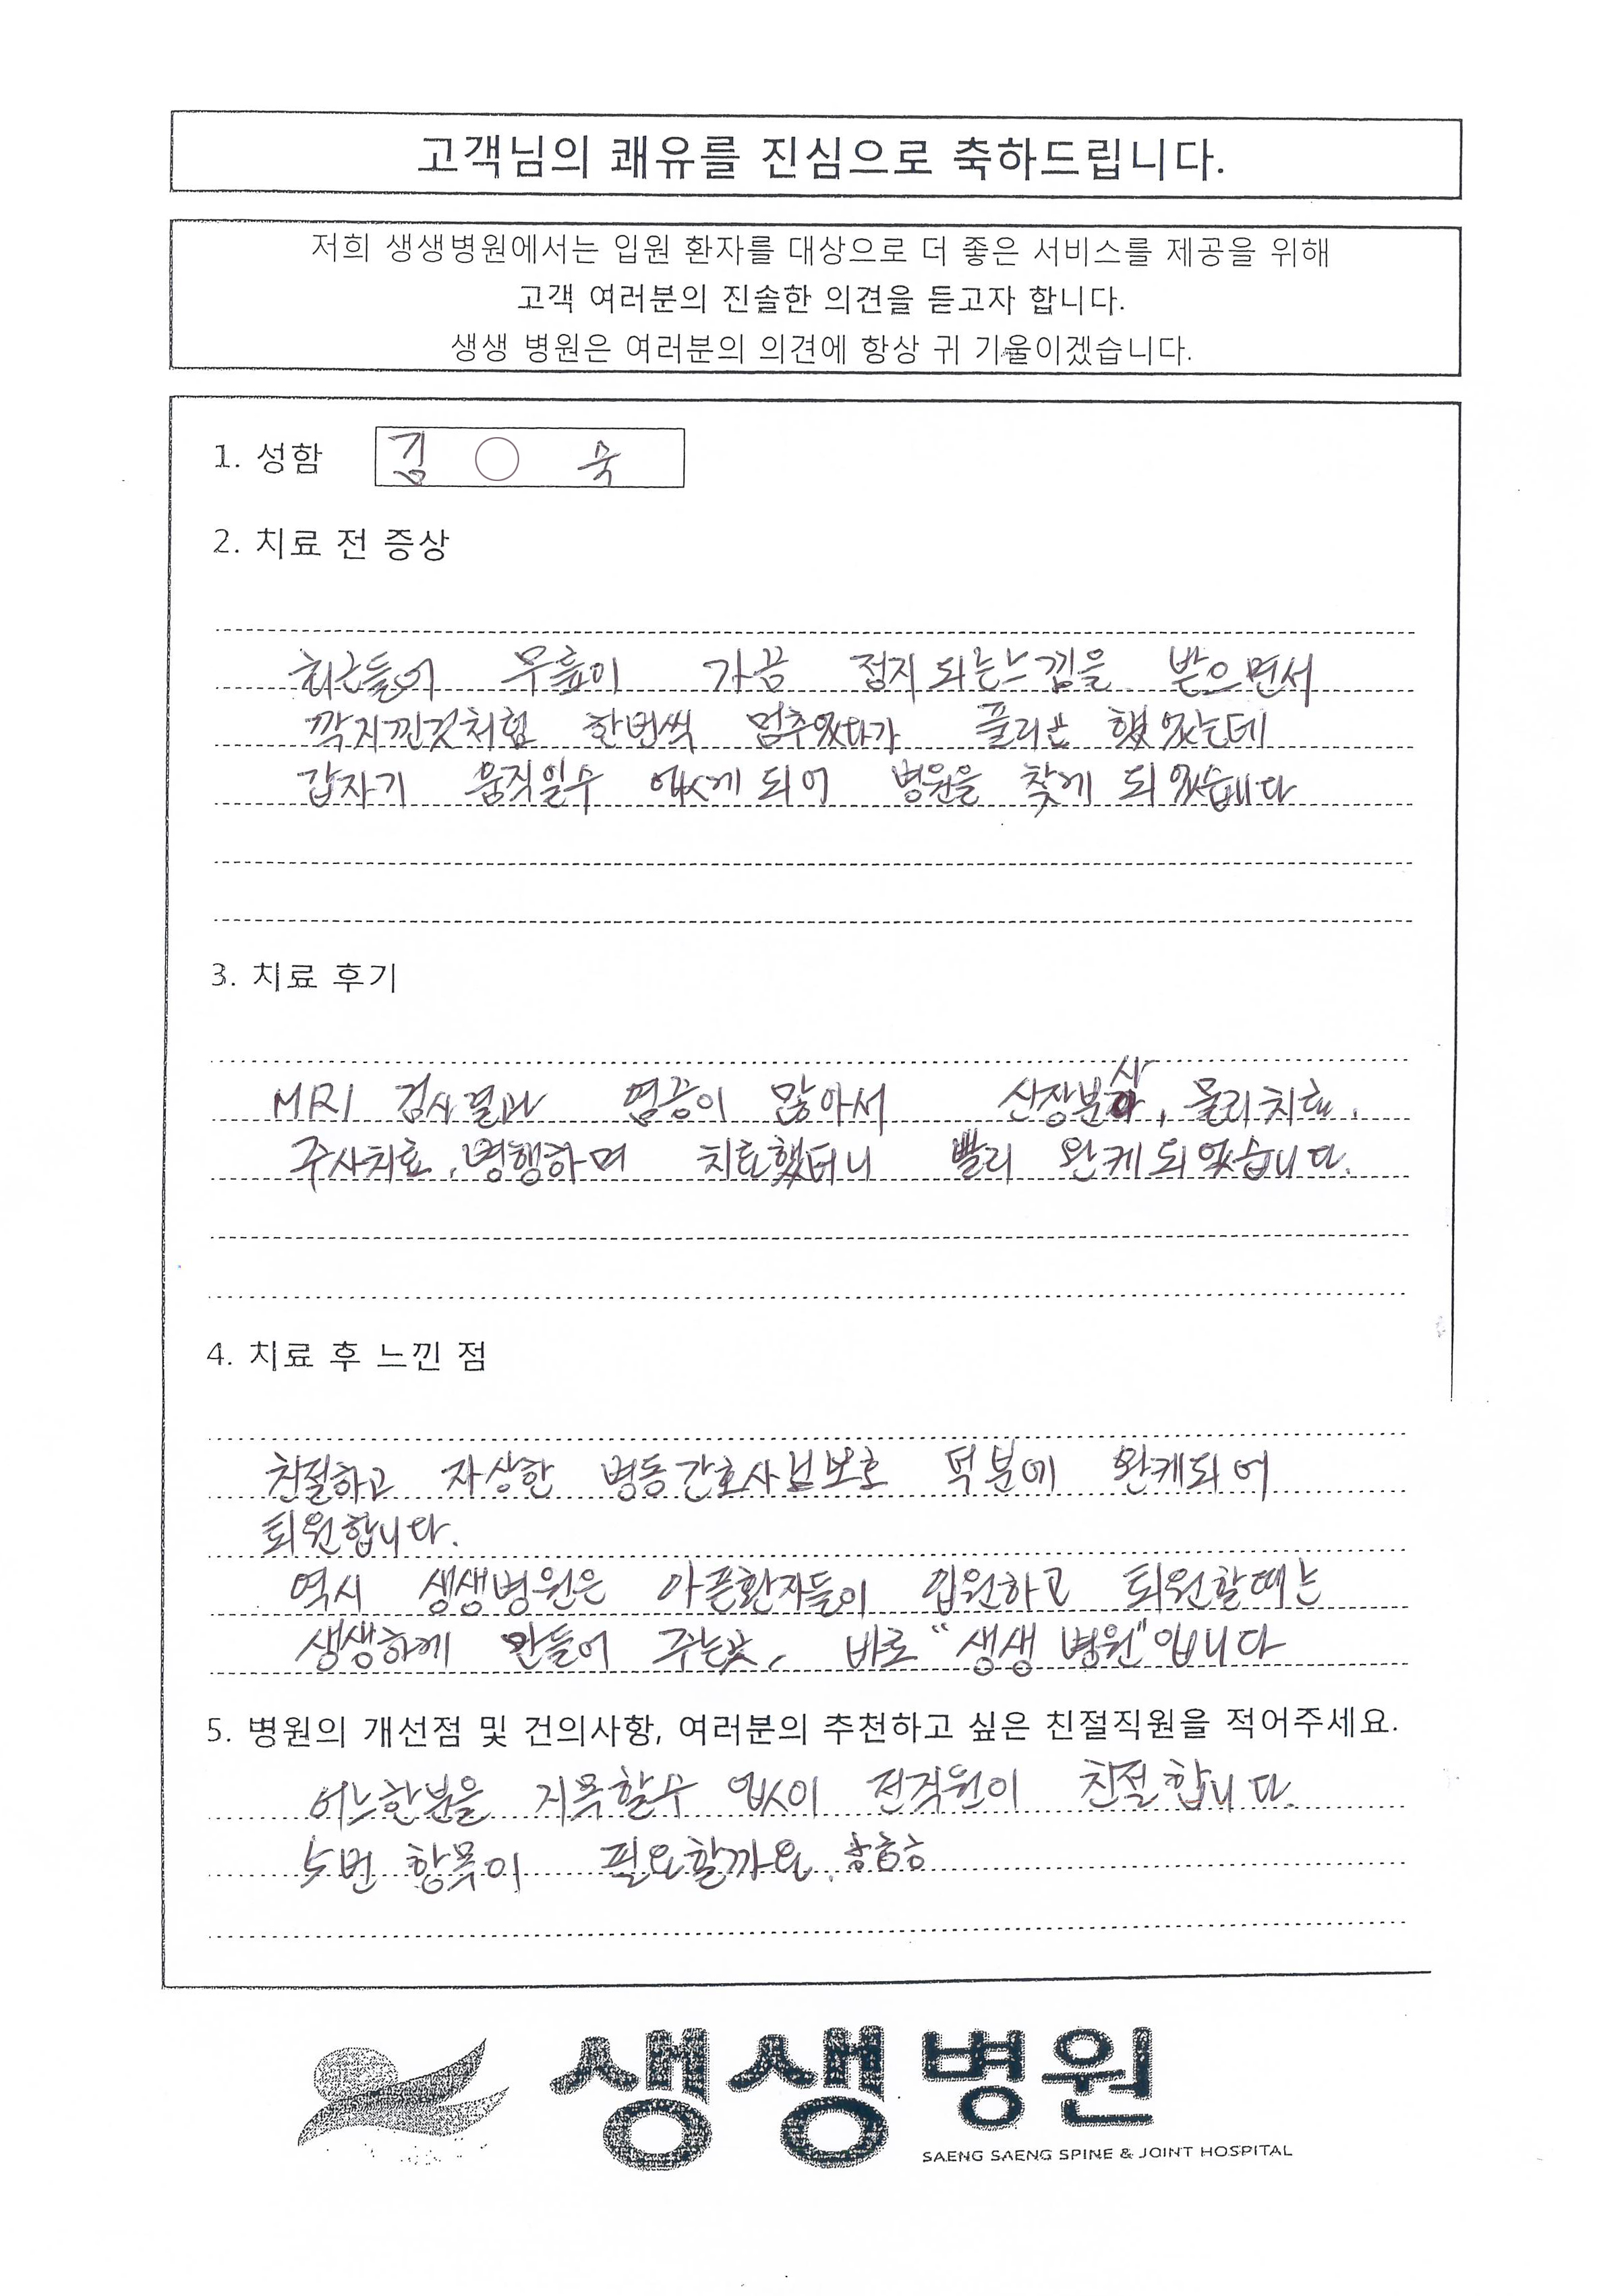 고객님의 쾌유를 진심으로 축하드립니다.
저희 생생병원에서는 입원 환자를 대상으로 더 좋은 서비스를 제공을 위해
고객 여러분의 진솔한 의견을 듣고자 합니다.
생생 병원은 여러분의 의견에 항상 귀 기울이겠습니다.
1. 성함 김 ○ 욱
2. 치료 전 증상
최근들어 무릎이 가끔 정지되는느낌을 받으면서
깍지낀것처럼 한번씩 멈추었다가 풀리곤 했었는데
갑자기 움직일수 없게 되어 병원을 찾게 되었습니다
3. 치료 후기
MRI 검사결과 염증이 많아서 신장분사, 물리치료,
주사치료, 병행하며 치료했더니 빨리 완케되었습니다.
4. 치료 후 느낀 점
친절하고 자상한 병동간호사님보호 덕분에 완케되어
퇴원합니다.
역시 생생병원은 아픈환자들이 입원하고 퇴원할때는
생생하게 만들어 주는곳, 바로 "생생 병원"입니다
5. 병원의 개선점 및 건의사항, 여러분의 추천하고 싶은 친절직원을 적어주세요.
어느한분을 지목할수 없이 전직원이 친절합니다.
5번 항목이 필요할까요. ㅎㅎㅎ
생생병원
SAENG SAENG SPINE & JOINT HOSPITAL